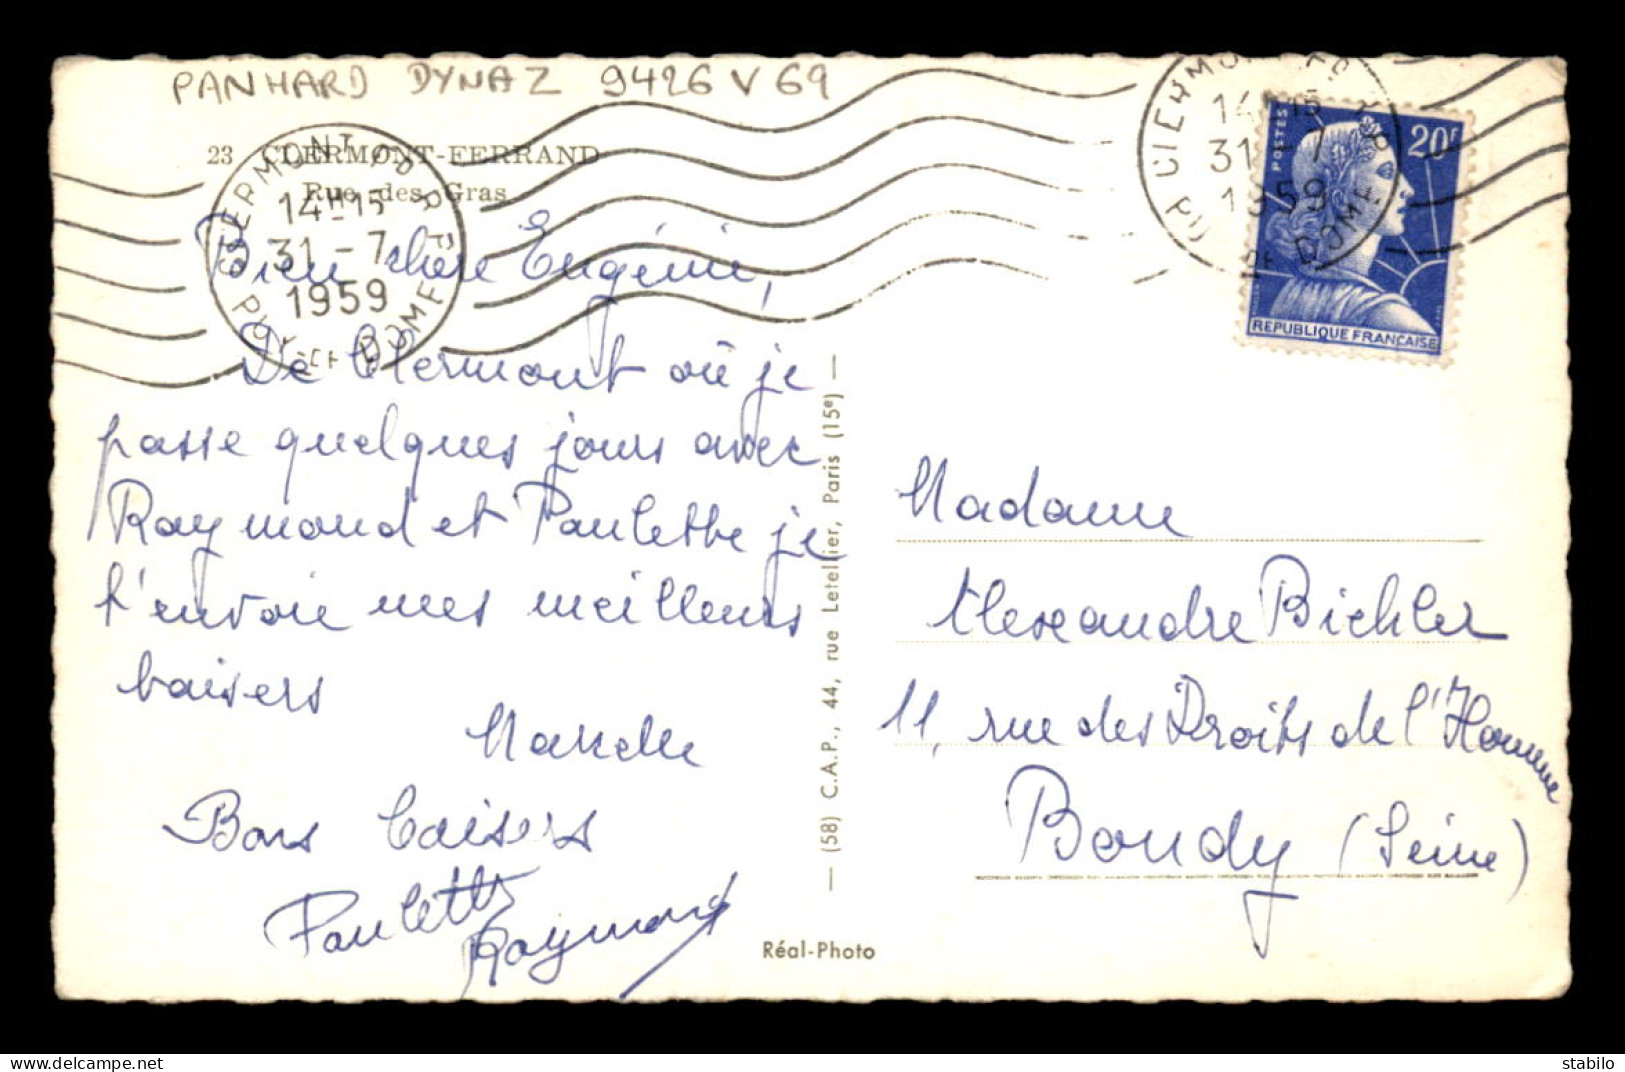 PANHARD DYNA Z 9426 V 69
23 CLERMONT-FERRAND
Rue des Gras
CLERMONT-FD R.P.
14H15
31-7
1959
PUY-DE-DOME
CLERMONT-FD R.P.
14H15
31-7
1959
PUY-DE-DOME
POSTES
20F
REPUBLIQUE FRANÇAISE
Bien chère Eugénie,
De Clermont où je
passe quelques jours avec
Raymond et Paulette je
t'envoie mes meilleurs
baisers
Marcelle
Bons baisers
Paulette
Raymond
— (58) C.A.P., 44, rue Letellier, Paris (15e) —
Réal-Photo
Madame
Alexandre Bichler
11, rue des Droits de l'Homme
Bondy (Seine)
delcampe.net
stabilo